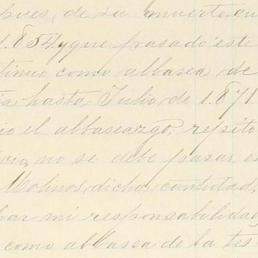 pues, de su muerte, en
1.854 y que pasado este
tinuo como albacea de
hasta Julio de 1.871
el albaceazgo, repito
no se debe pasar en
Molinos, dicha cantidad,
mi responsabilidad
como albacea de la tes